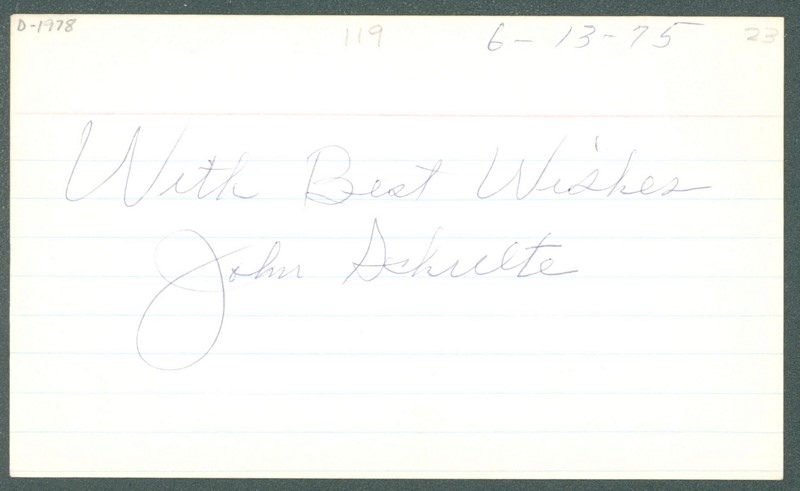 D-1978 119 6-13-75 23
With Best Wishes
John Schulte